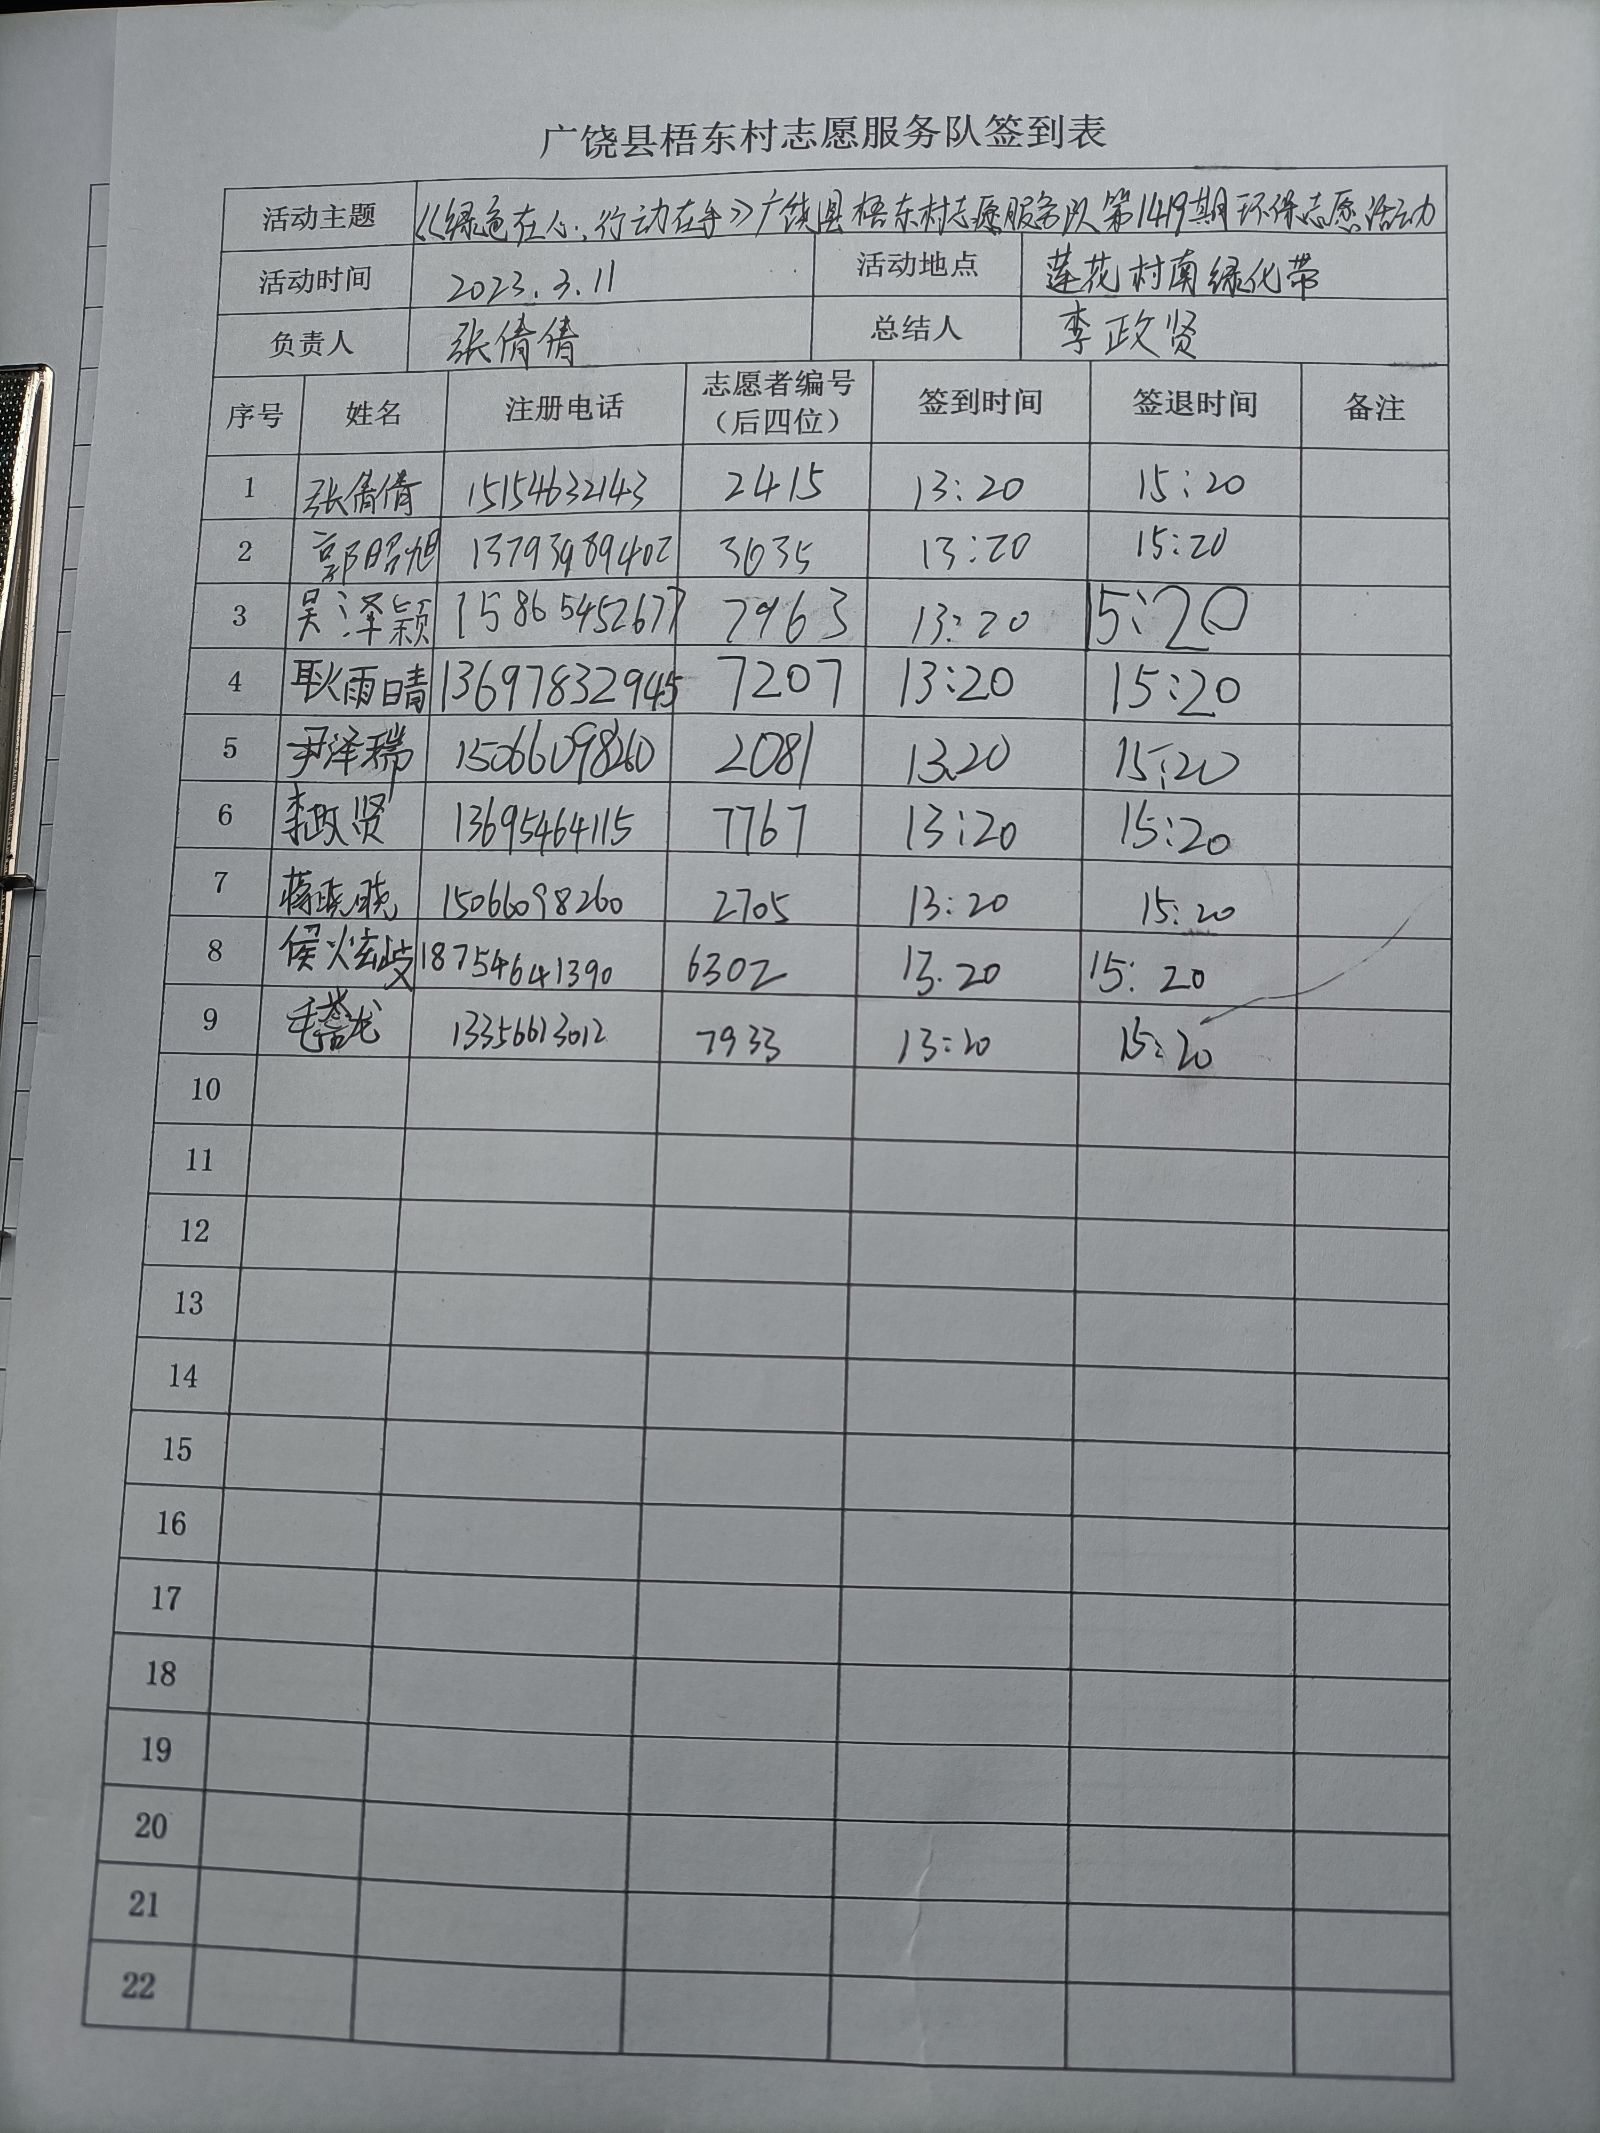 广饶县梧东村志愿服务队签到表
活动主题 《绿色在心,行动在手》广饶县梧东村志愿服务队第1419期环保志愿活动
活动时间 2023.3.11 活动地点 莲花村南绿化带
负责人 张倩倩 总结人 李政贤
序号 姓名 注册电话 志愿者编号（后四位） 签到时间 签退时间 备注
1 张倩倩 15154632143 2415 13:20 15:20
2 郭昭旭 13793989402 3635 13:20 15:20
3 吴泽颖 15865452677 7963 13:20 15:20
4 耿雨晴 13697832945 7207 13:20 15:20
5 尹泽瑞 15066098260 2081 13.20 15:20
6 李政贤 13695464115 7767 13:20 15:20
7 蒋晓晓 15066098260 2705 13:20 15:20
8 侯炫岐 18754641390 6302 13.20 15:20
9 13356613012 7933 13:20 15:20
10
11
12
13
14
15
16
17
18
19
20
21
22